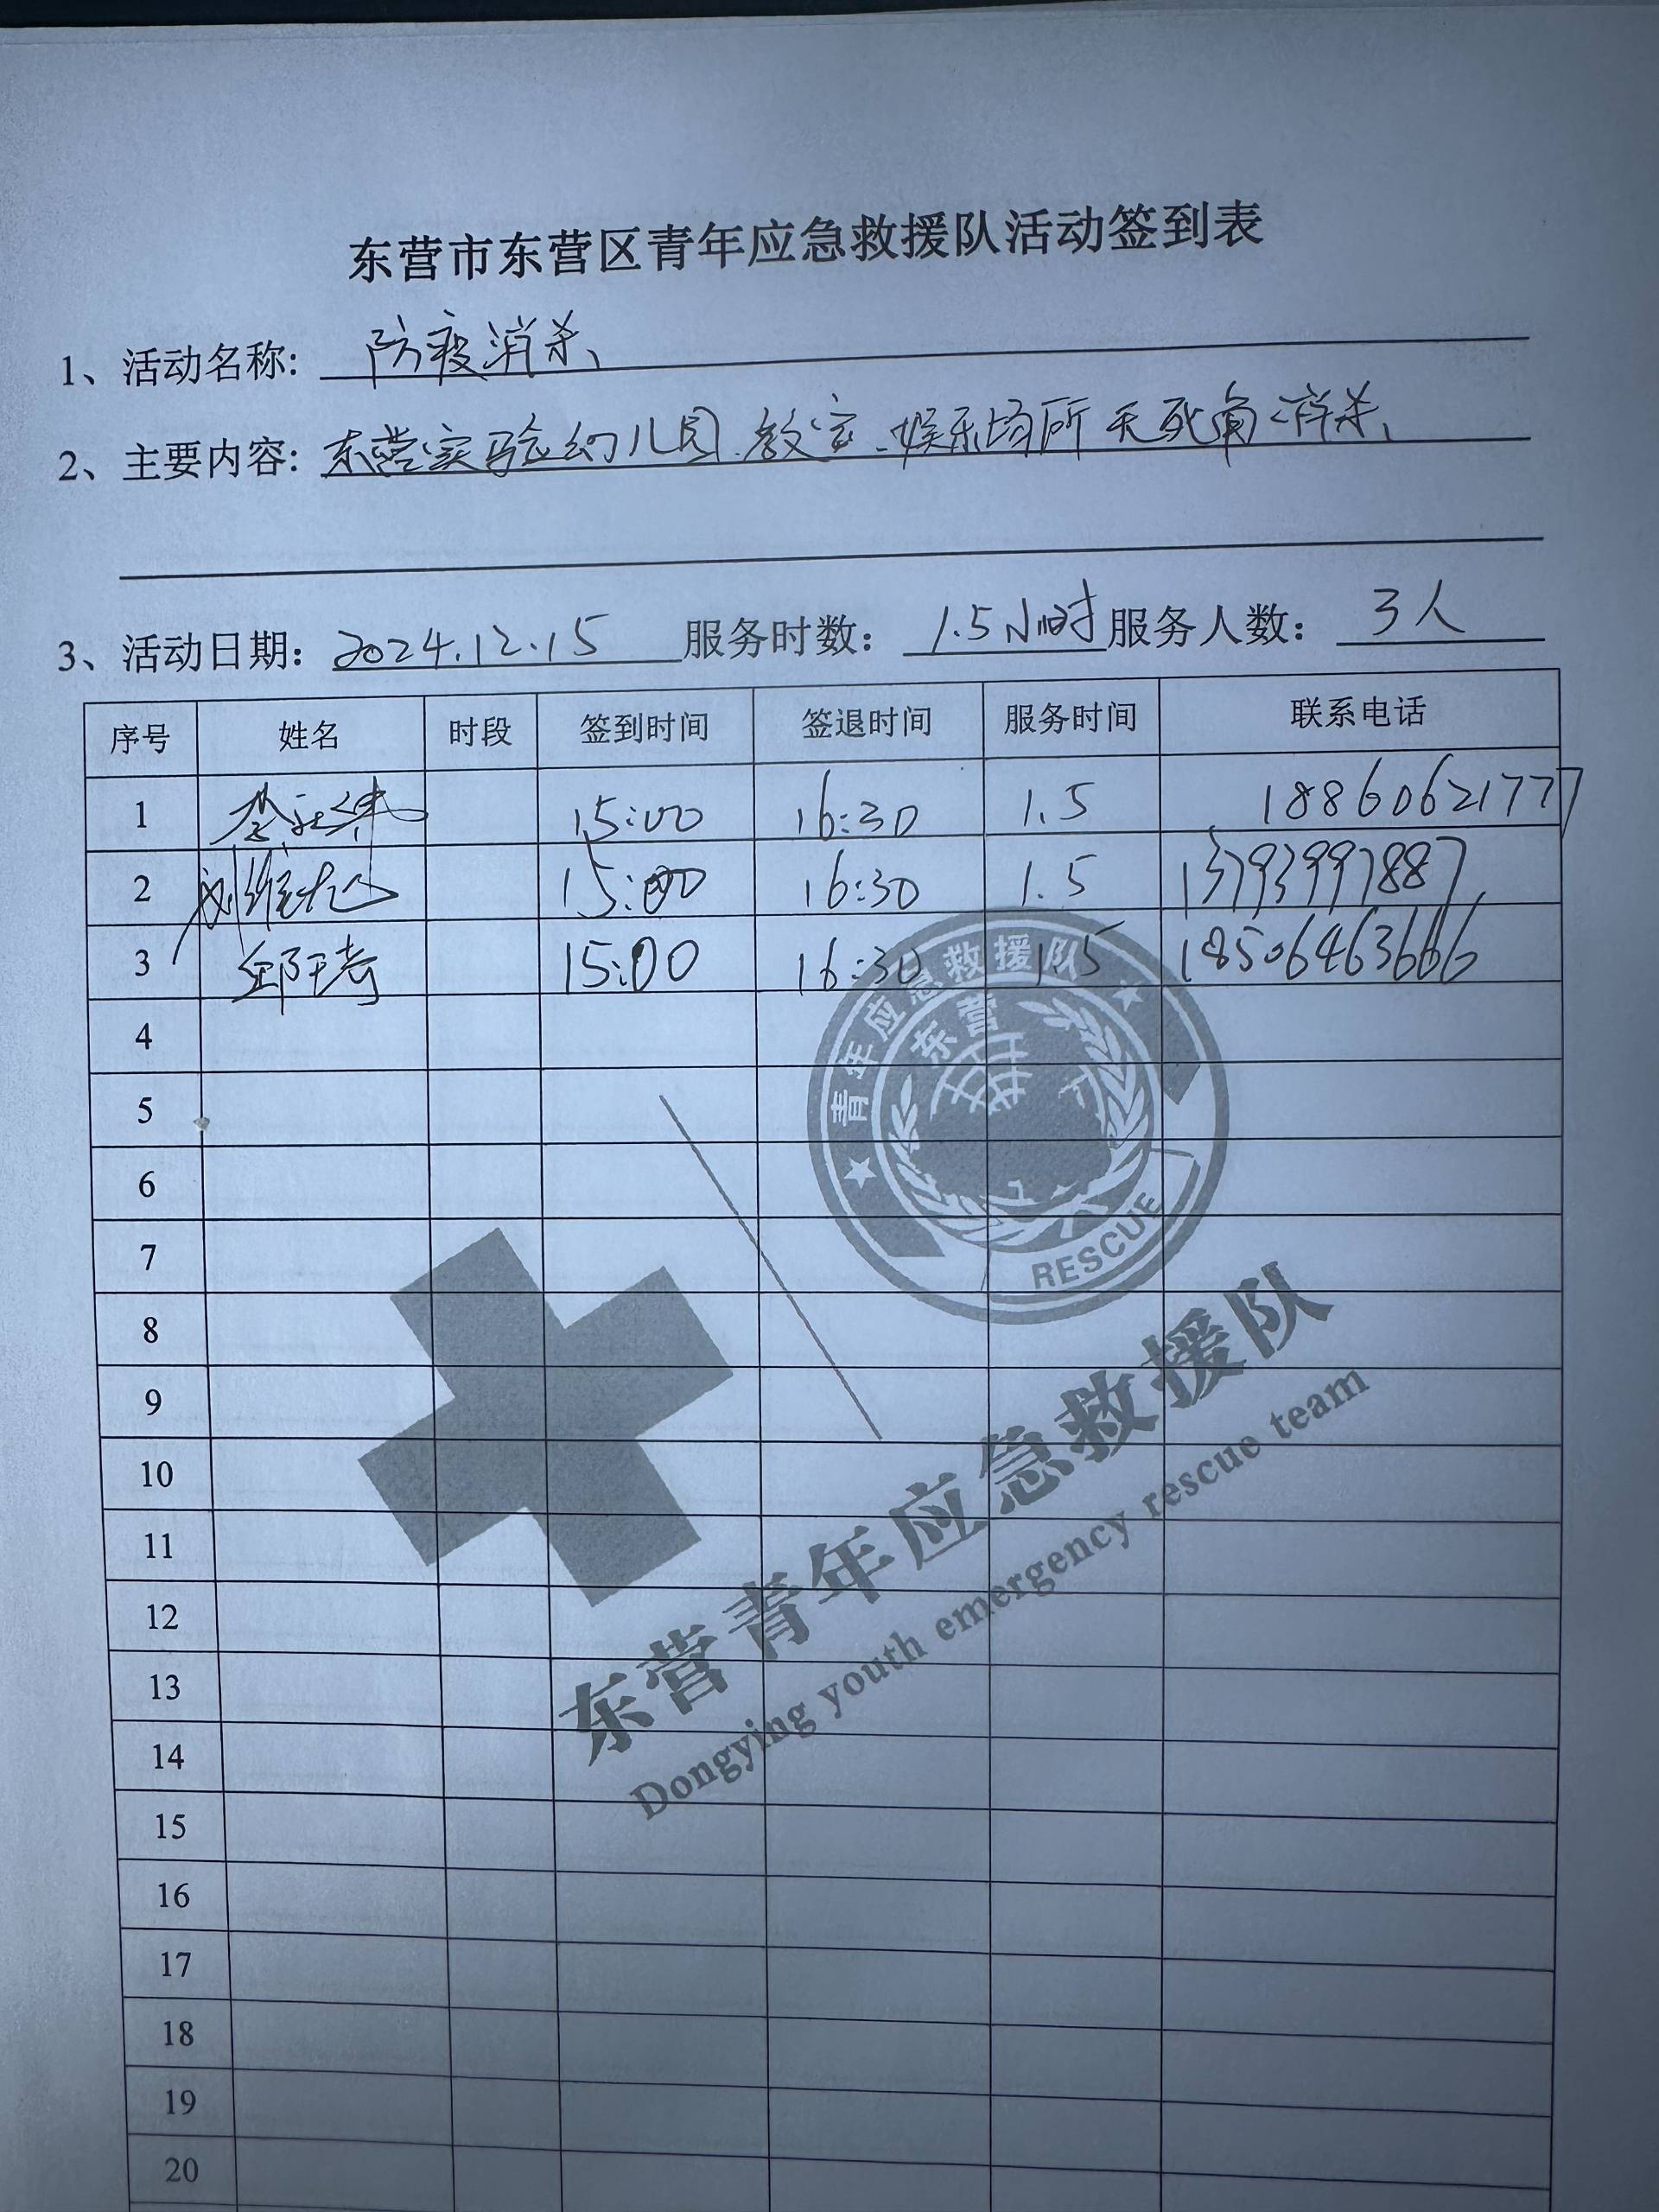 东营市东营区青年应急救援队活动签到表
1、活动名称: 防疫消杀、
2、主要内容: 东营实验幼儿园、教室、娱乐场所无死角消杀、
3、活动日期: 2024.12.15 服务时数: 1.5小时 服务人数: 3人
序号 姓名 时段 签到时间 签退时间 服务时间 联系电话
1 15:00 16:30 1.5 18860621777
2 刘维龙 15:00 16:30 1.5 13793997887
3 15:00 16:30 1.5 18506463666
4
5
6
7
8
9
10
11
12
13
14
15
16
17
18
19
20
青年应急救援队
东营
RESCUE
东营青年应急救援队
Dongying youth emergency rescue team